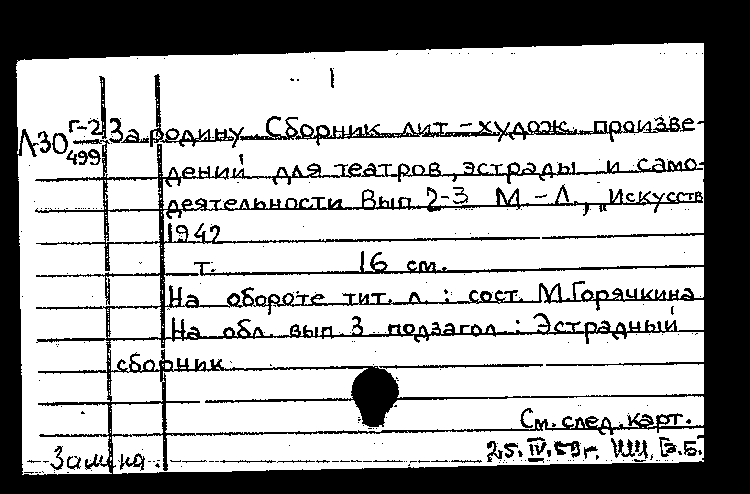 1
Л-30 Г-2/499 За родину. Сборник лит-худож. произве-
дений для театров, эстрады и само-
деятельности Вып 2-3 М.-Л., „Искусств
1942
т. 16 см.
На обороте тит. л.: сост. М.Горячкина
На обл. вып 3 подзагол: Эстрадный
сборник.
См. след. карт.
Замена. 25.IV.59г. [Э.Б.]